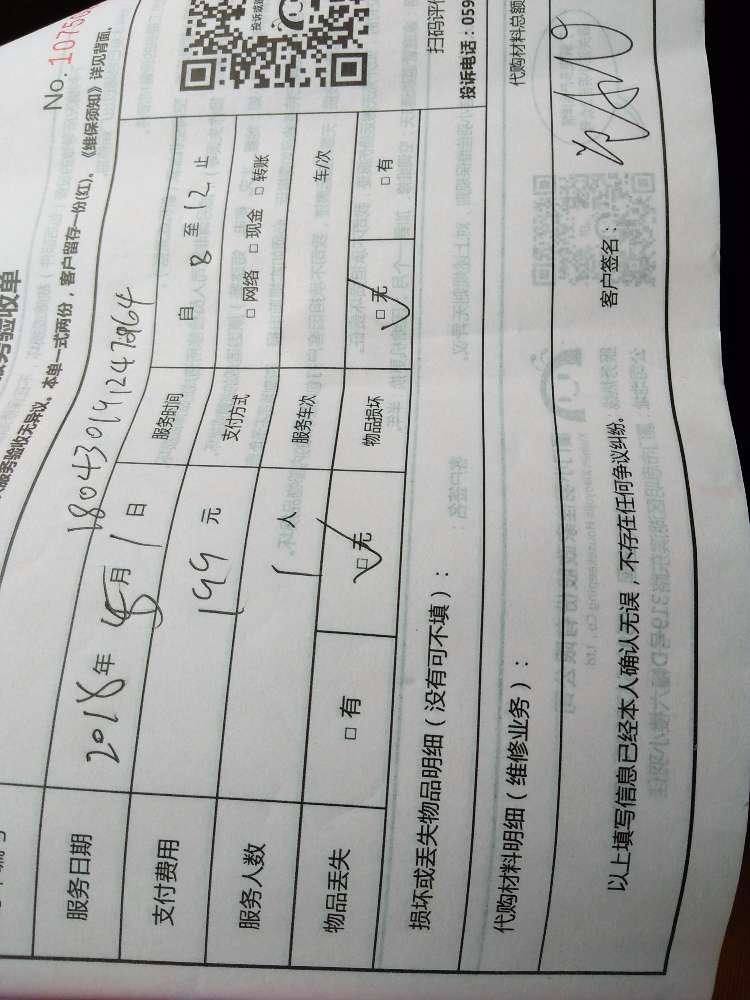 务验收单 No. 1075
服务验收无异议。本单一式两份，客户留存一份(红)。《维保须知》详见背面。
1804301912472864
服务日期 2018年 5月 1日 服务时间 自 8 至 12 止
支付费用 199 元 支付方式 □ 网络 □ 现金 □ 转账
服务人数 1 人 服务车次 车/次
物品丢失 □ 有 □ 无 物品损坏 □ 无 □ 有
损坏或丢失物品明细（没有可不填）：
扫码评
投诉电话：059
代购材料明细（维修业务）： 代购材料总额
以上填写信息已经本人确认无误，不存在任何争议纠纷。 客户签名：